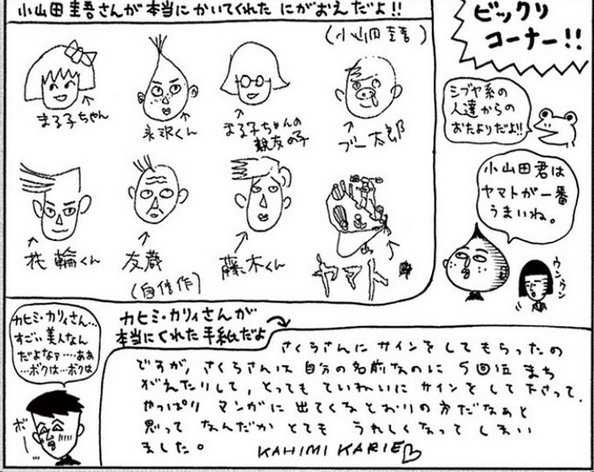 小山田圭吾さんが本当にかいてくれた にがおえだよ!!
(小山田圭吾)
まる子ちゃん
永沢くん
まる子ちゃんの
親友の子
ブー太郎
花輪くん
友蔵
(自信作)
藤木くん
ヤマト
ビックリ
コーナー!!
シブヤ系の
人達からの
おたよりだよ!!
小山田君は
ヤマトが一番
うまいね。
ウンウン
カヒミ・カリィさん…
すごい美人なん
だよなァ……ああ
…ボクは…ボクは
ボー
カヒミ・カリィさんが
本当にくれた手紙だよ
さくらさんにサインをしてもらったの
ですが、さくらさんは自分の名前なのに5回位まち
がえたりして、とってもていねいにサインをして下さって、
やっぱりマンガに出てくるとおりの方だなぁと
思ってなんだかとてもうれしくなってしまい
ました。 KAHIMI KARIE♡